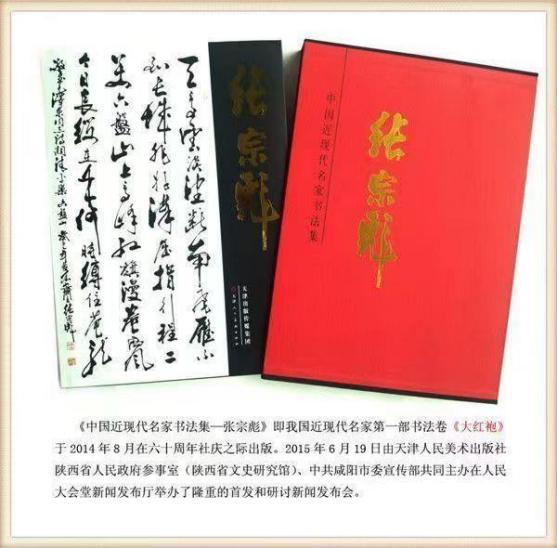 天高雲淡望斷南飛雁不
到長城非好漢屈指行程二
萬六盤山上高峰紅旗漫卷西風
今日長纓在手何時縛住蒼龍
张宗彪
天津出版传媒集团
天津人民美术出版社
中国近现代名家书法集
张宗彪
《中国近现代名家书法集—张宗彪》即我国近现代名家第一部书法卷《大红袍》
于2014年8月在六十周年社庆之际出版。2015年6月19日由天津人民美术出版社
陕西省人民政府参事室（陕西省文史研究馆）、中共咸阳市委宣传部共同主办在人民
大会堂新闻发布厅举办了隆重的首发和研讨新闻发布会。